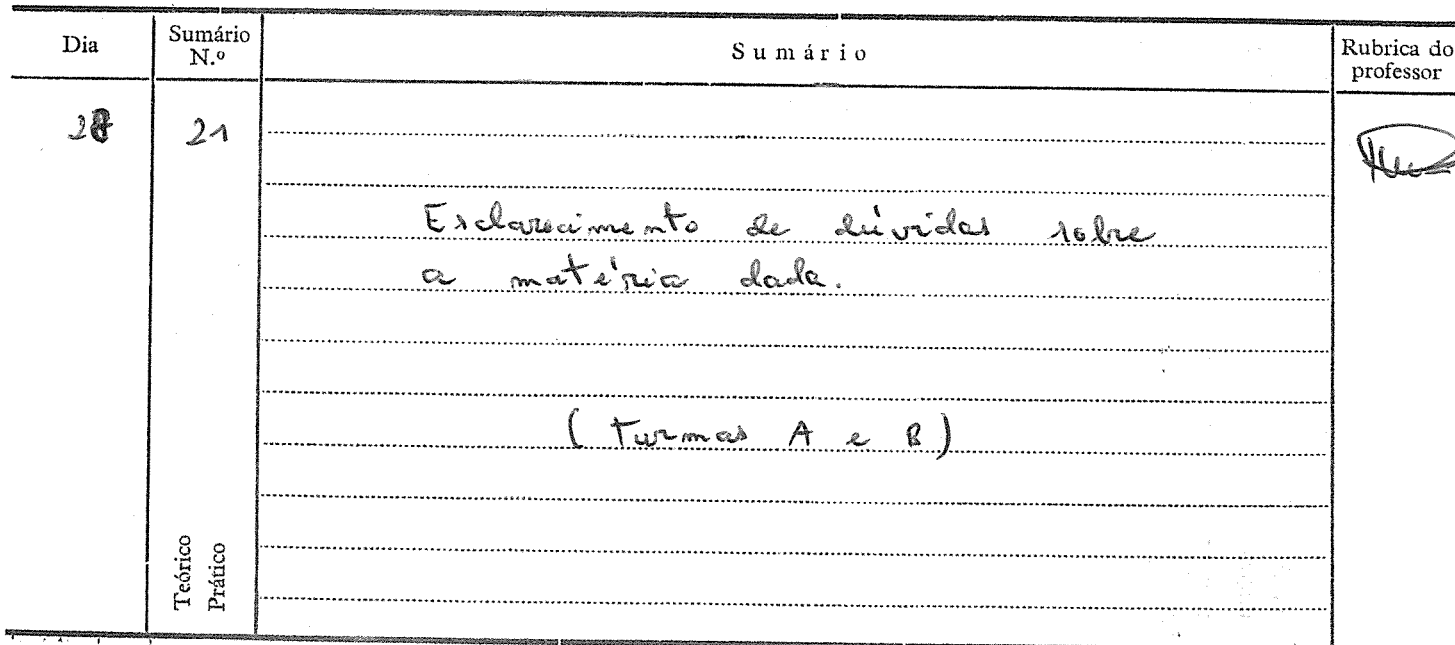 Dia
Sumário
N.º
Sumário
Rubrica do
professor
21
Esclarecimento de dúvidas sobre
a matéria dada.
(Turmas A e B)
Teórico
Prático